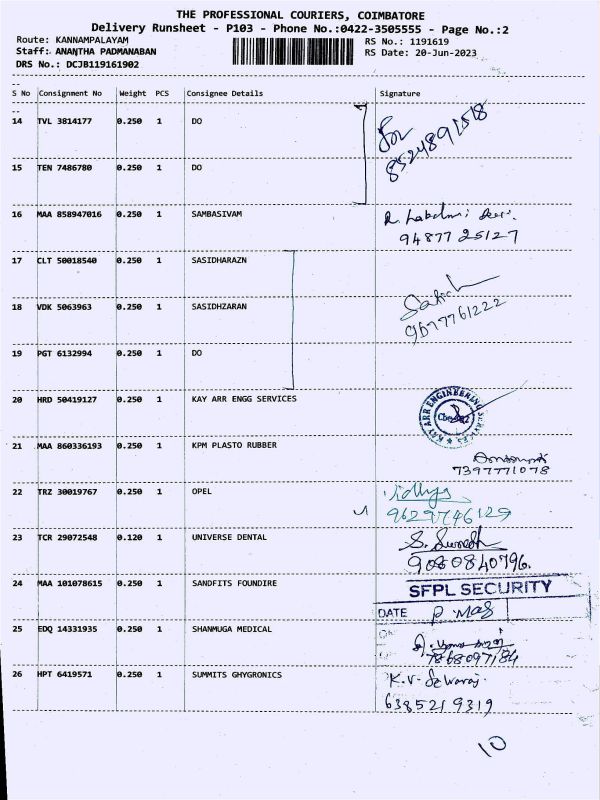 THE PROFESSIONAL COURIERS, COIMBATORE
Delivery Runsheet - P103 - Phone No.:0422-3505555 - Page No.:2
Route: KANNAMPALAYAM RS No.: 1191619
Staff: ANANTHA PADMANABAN RS Date: 20-Jun-2023
DRS No.: DCJB119161902
S No Consignment No Weight PCS Consignee Details Signature
14 TVL 3814177 0.250 1 DO
8524891518
15 TEN 7486780 0.250 1 DO
16 MAA 858947016 0.250 1 SAMBASIVAM R. Lakshmi Devi.
94877 25127
17 CLT 50018540 0.250 1 SASIDHARAZN
18 VDK 5063963 0.250 1 SASIDHZARAN
9677761222
19 PGT 6132994 0.250 1 DO
20 HRD 50419127 0.250 1 KAY ARR ENGG SERVICES
KAY ARR ENGINEERING SERVICES
21 MAA 860336193 0.250 1 KPM PLASTO RUBBER
7397771078
22 TRZ 30019767 0.250 1 OPEL Vidhya
9629746129
23 TCR 29072548 0.120 1 UNIVERSE DENTAL S. Suresh
9080840796.
24 MAA 101078615 0.250 1 SANDFITS FOUNDIRE SFPL SECURITY
DATE
25 EDQ 14331935 0.250 1 SHANMUGA MEDICAL
7868097184
26 HPT 6419571 0.250 1 SUMMITS GHYGRONICS K.V. Selvaraj
6385219319
10